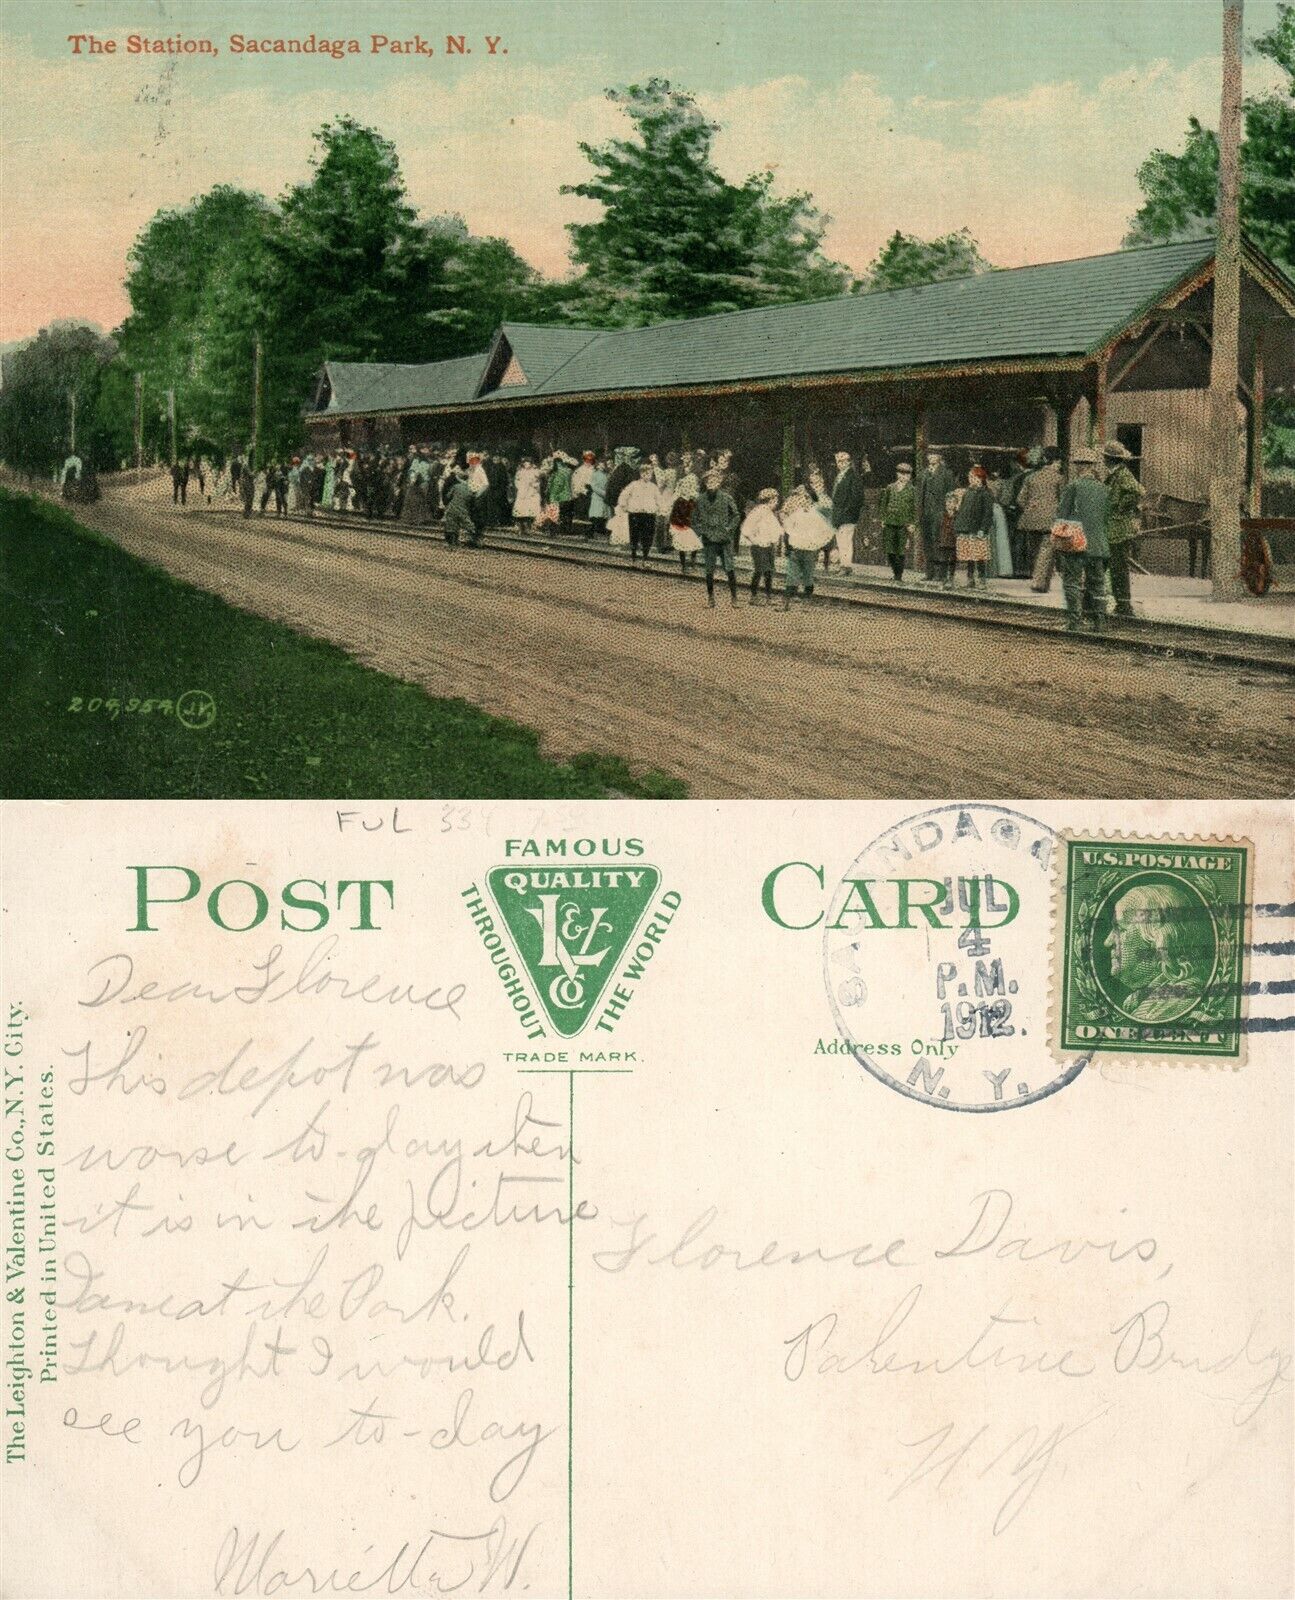 The Station, Sacandaga Park, N. Y.
204,954 J.V.
FUL 334
POST CARD
FAMOUS
QUALITY
THROUGHOUT
THE WORLD
L&V
CO
TRADE MARK.
SACANDAGA
JUL
4
P.M.
1912.
N. Y.
U.S. POSTAGE
ONE CENT
Address Only
The Leighton & Valentine Co., N.Y. City.
Printed in United States.
Dear Florence
This depot was
worse to-day then
it is in the picture
I am at the Park.
Thought I would
see you to-day
Marietta W.
Florence Davis,
Palentine Bridge
N Y